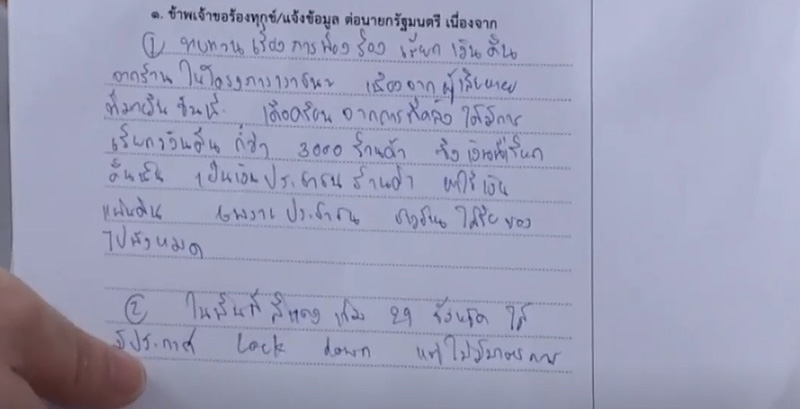 ๑. ข้าพเจ้าขอร้องทุกข์/แจ้งข้อมูล ต่อนายกรัฐมนตรี เนื่องจาก
① ทบทวน เรื่อง การฟ้องร้อง เรียก เงิน คืน
จากร้าน ในโครงการเราชนะ เนื่องจาก ผู้เสียหาย
ที่มายื่น เดือดร้อน จากการที่คลัง ได้มีการ
เรียกเงินคืน กว่า 3000 ร้านค้า ซึ่ง เงินที่เรียก
คืนนั้น เป็นเงินประชาชน ร้านค้า เงิน
แผ่นดิน เพราะ ประชาชน ได้ ของ
ไปทั้งหมด
② ในพื้นที่ สีแดง เข้ม 29 จังหวัด ได้
มีประกาศ lock down แต่ไม่มีมาตรการ